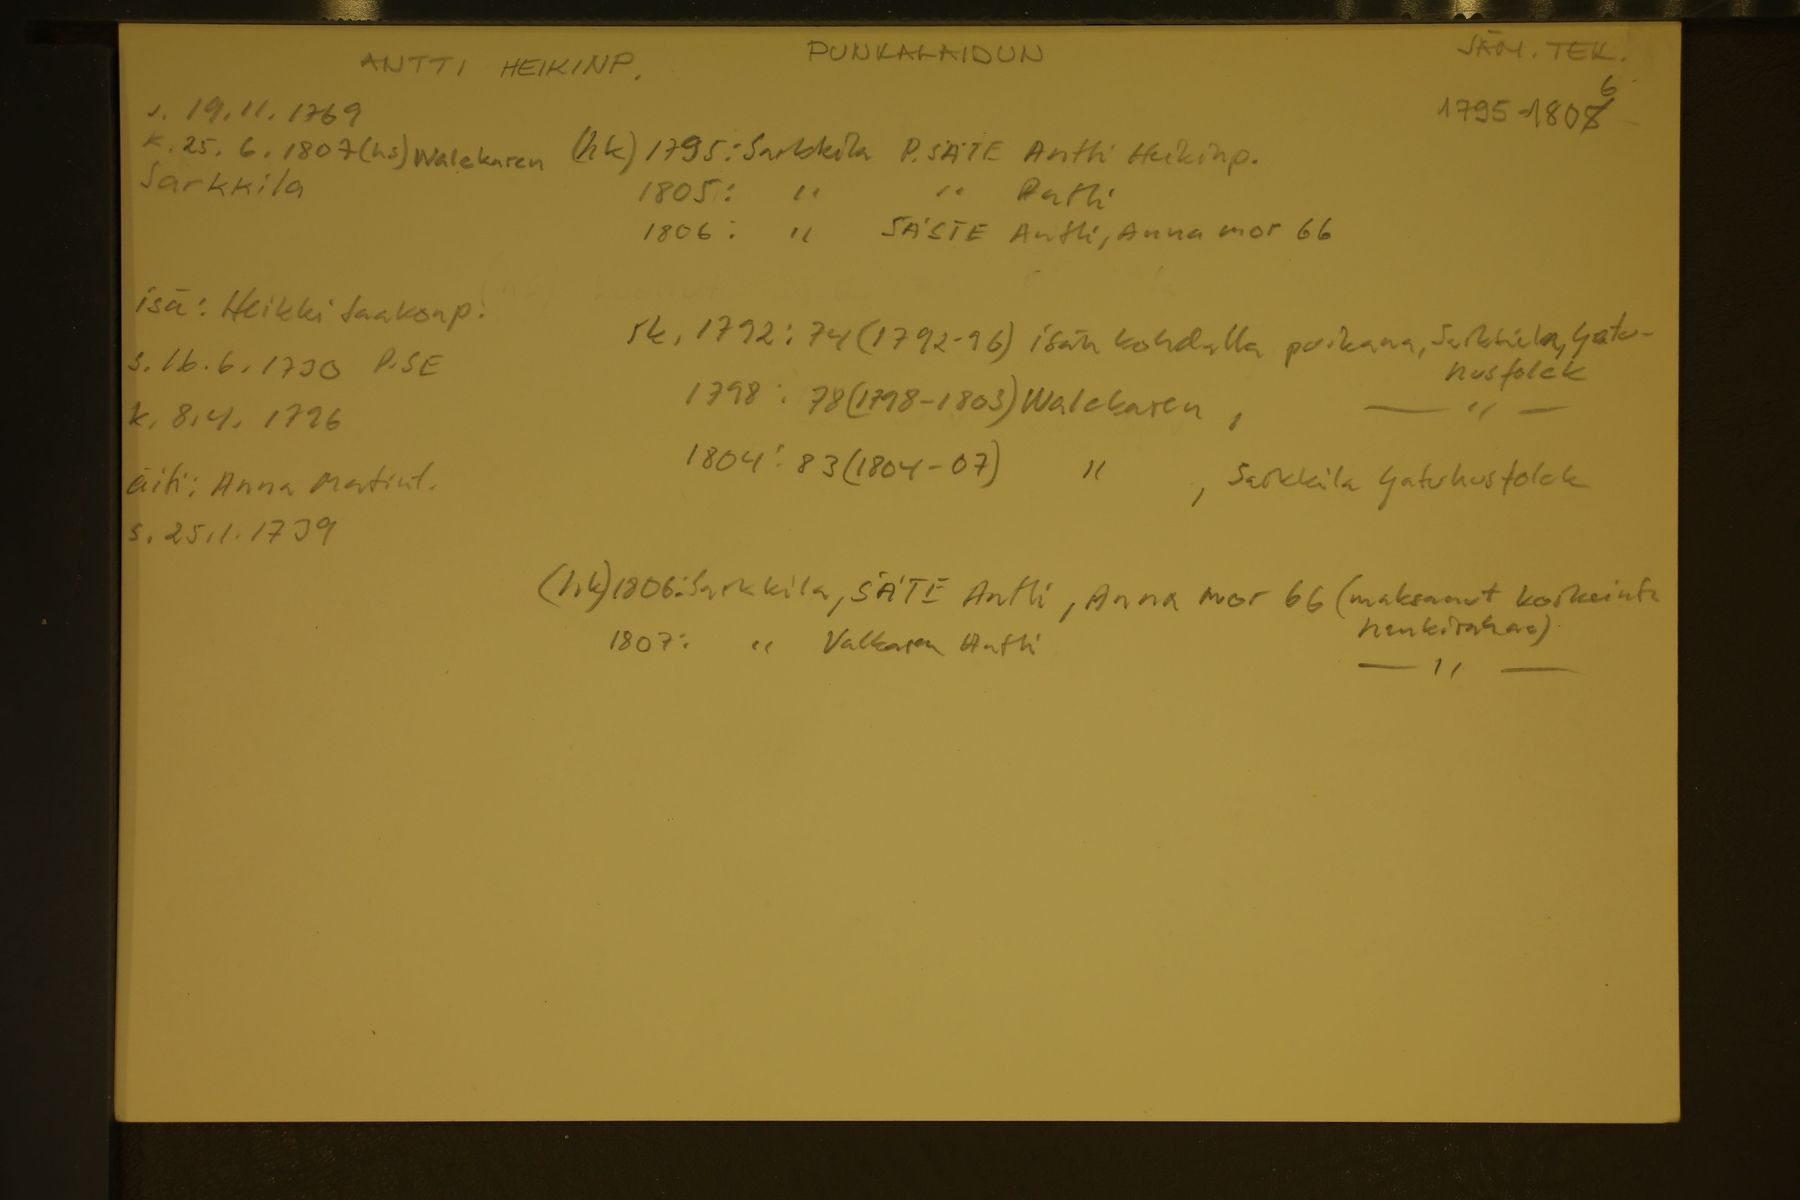 ANTTI HEIKINP.
PUNKALAIDUN
SÄM. TEK.
s. 19.11.1769
6
1795-1807
k. 25.6.1807 (hs) Walckaren
Sarkkila
(hk) 1795: Sarkkila P.SÄTE Antti Heikinp.
1805: " " Antti
1806: " SÄSTE Antti, Anna mor 66
isä: Heikki Jaakonp.
s. 16.6.1730 P.SE
k. 8.4. 1796
äiti: Anna Matint.
s. 25.1.1739
rk. 1792: 74 (1792-96) isän kohdalla poikana, Sarkkila, Gatu-
husfolck
1798: 78 (1798-1803) Walckaren, — " —
1804: 83 (1804-07) " , Sarkkila Gatuhusfolck
(hk) 1806: Sarkkila, SÄTE Antti, Anna mor 66 (maksanut korkeinta
henkirahaa)
1807: " Valkaren Antti — " —